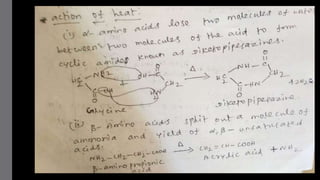 action of heat:
(i) α- amino acids lose two molecules of water
between two molecules of the acid to form
cyclic amides known as diketopiperazines.
Glycine
diketopiperazine.
(ii) β- Amino acids split out a molecule of
ammonia and yield of α, β- unsaturated
acids:
NH2-CH2-CH2-COOH Δ CH2=CH-COOH
β-amino propionic Acrylic acid + NH3
acid